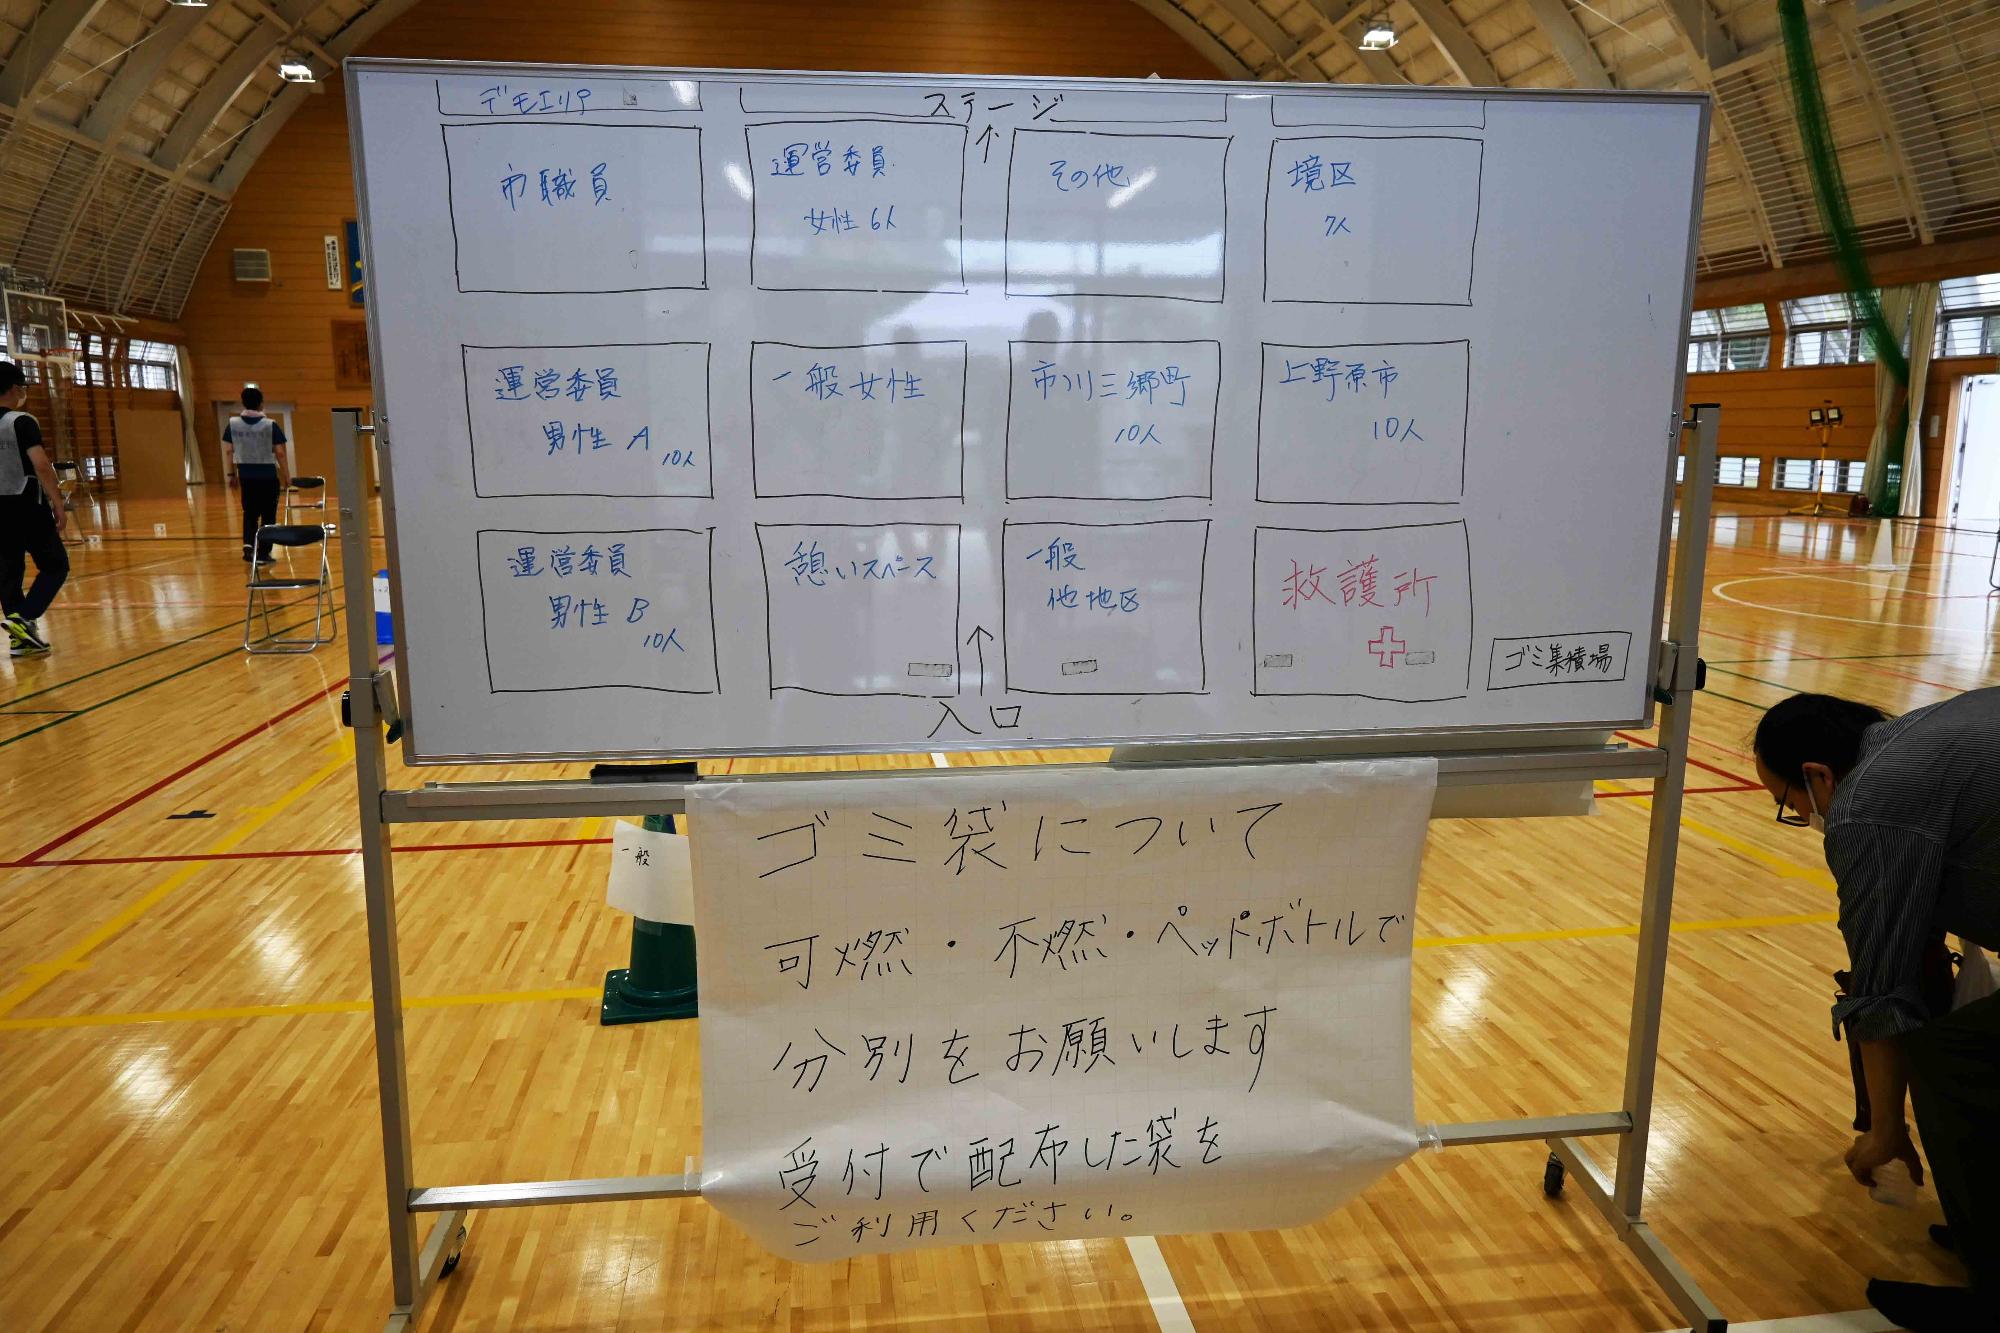 デモエリア
ステージ
市職員
運営委員
女性 6人
その他
境区
7人
運営委員
男性 A
10人
一般女性
市川三郷町
10人
上野原市
10人
運営委員
男性 B
10人
憩いスペース
一般
他地区
救護所
ゴミ集積場
入口
一般
ゴミ袋について
可燃・不燃・ペットボトルで
分別をお願いします
受付で配布した袋を
ご利用ください。